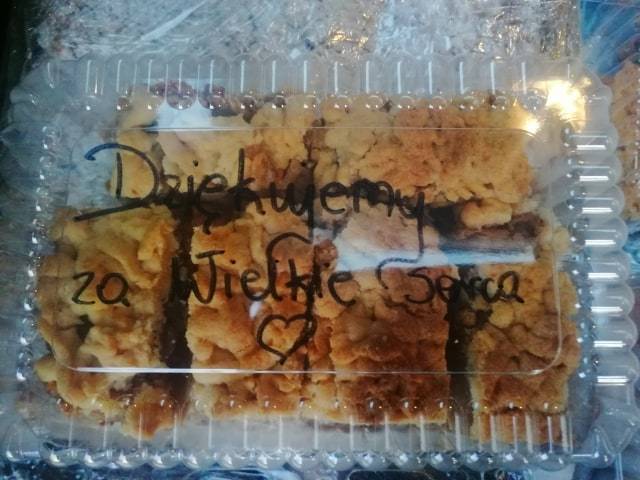 Dziękujemy
za Wielkie serca
♡